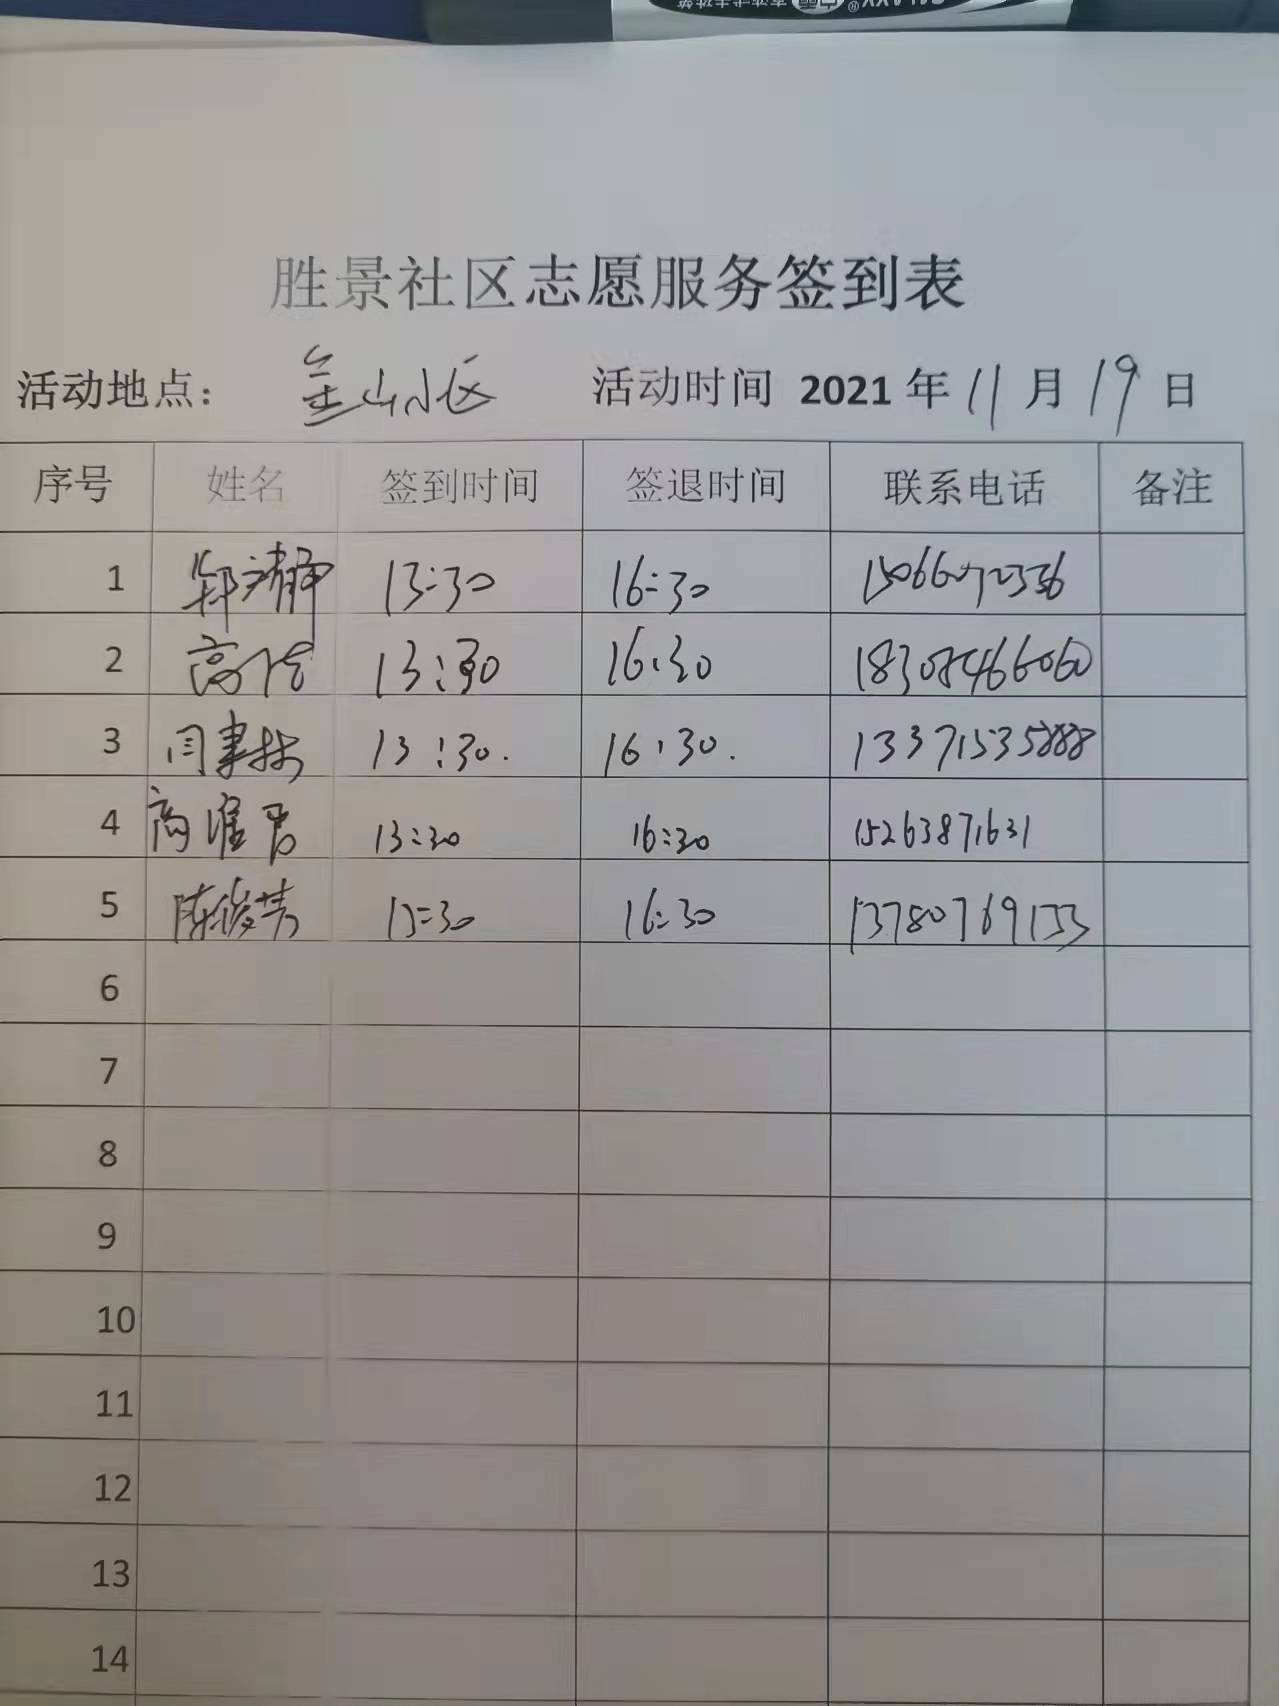 胜景社区志愿服务签到表
活动地点： 金山小区 活动时间 2021 年 11 月 19 日
序号 姓名 签到时间 签退时间 联系电话 备注
1 郑靖静 13:30 16:30 15066072336
2 高传 13:30 16:30
3 闫聿彬 13:30. 16:30. 13371535888
4 商淮君 13:30 16:30 15263871631
5 陈俊芳 13:30 16:30 13780769133
6
7
8
9
10
11
12
13
14